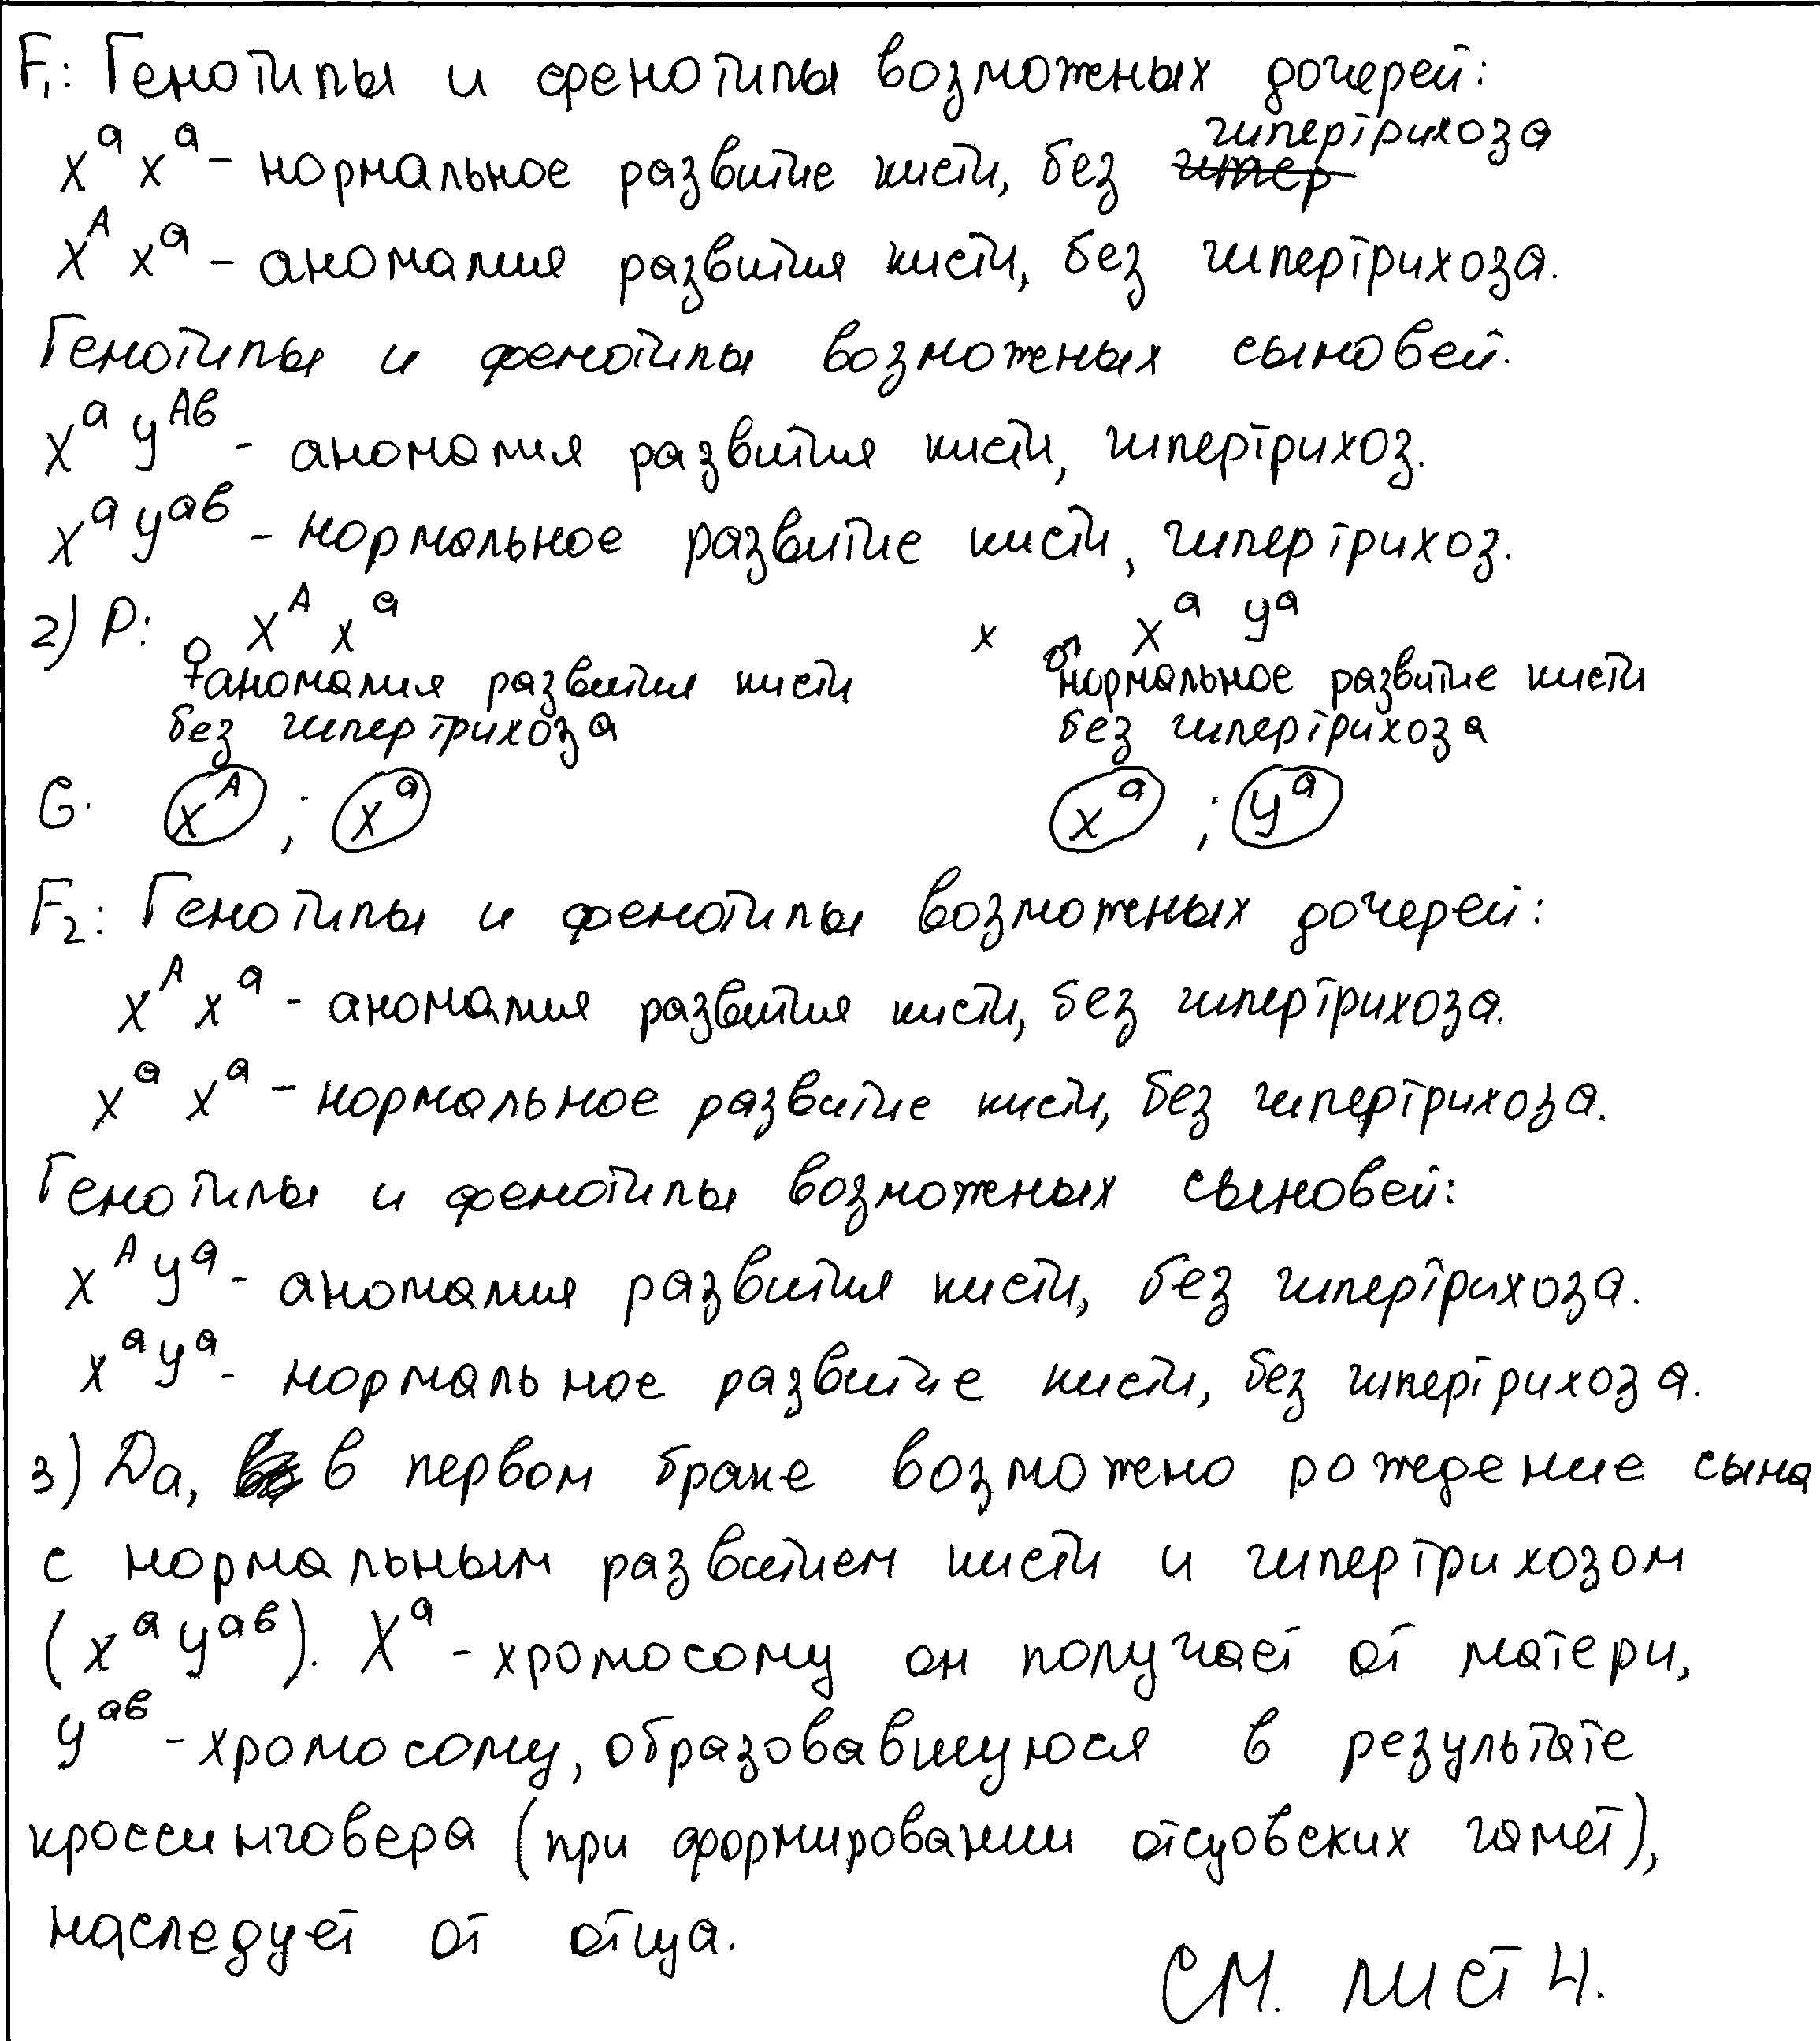 F₁: Генотипы и фенотипы возможных дочерей:
гипертрихоза
xᵃ xᵃ – нормальное развитие кисти, без ~~гипер~~
x^A xᵃ – аномалия развития кисти, без гипертрихоза.
Генотипы и фенотипы возможных сыновей.
xᵃ y^Ав – аномалия развития кисти, гипертрихоз.
xᵃ y^ав – нормальное развитие кисти, гипертрихоз.
2) P: ♀ x^A xᵃ x ♂ xᵃ yᵃ
аномалия развития кисти нормальное развитие кисти
без гипертрихоза без гипертрихоза
G. x^A ; xᵃ xᵃ ; yᵃ
F₂: Генотипы и фенотипы возможных дочерей:
x^A xᵃ – аномалия развития кисти, без гипертрихоза.
xᵃ xᵃ – нормальное развитие кисти, без гипертрихоза.
Генотипы и фенотипы возможных сыновей:
x^A yᵃ – аномалия развития кисти, без гипертрихоза.
xᵃ yᵃ – нормальное развитие кисти, без гипертрихоза.
3) Да, в первом браке возможно рождение сына
с нормальным развитием кисти и гипертрихозом
(xᵃ y^ав). Xᵃ – хромосому он получает от матери,
y^ав – хромосому, образовавшуюся в результате
кроссинговера (при формировании отцовских гамет),
наследует от отца.
см. лист 4.